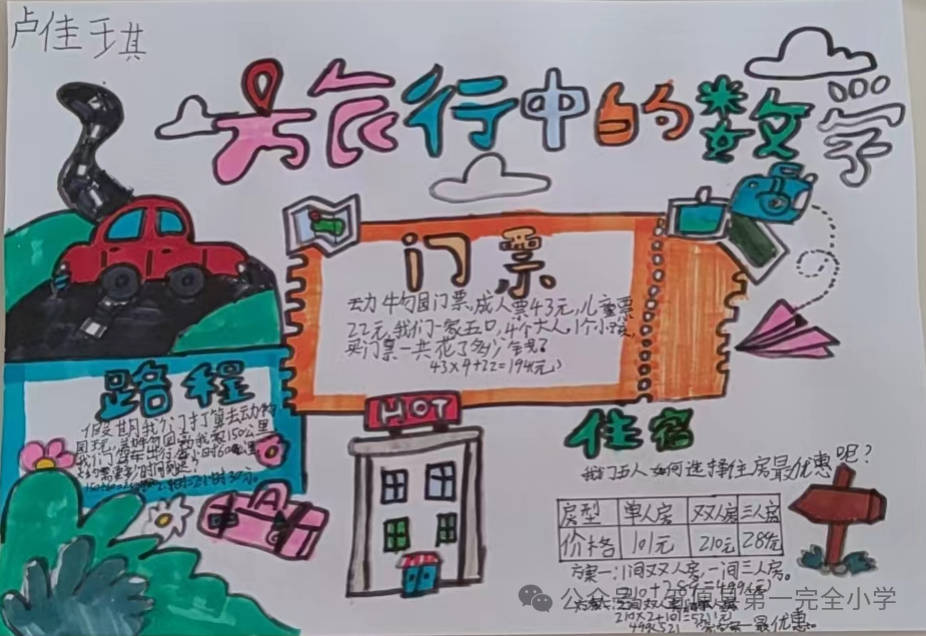 卢佳琪
去旅行中的数学
门票
动物园门票,成人票43元,儿童票
22元,我们一家五口,4个大人,1个小孩,
买门票一共花了多少钱呢?
43×4+22=194(元)
路程
假期我们打算去动物
150公里
我们
HOT
住宿
我们五人如何选择住房最优惠呢?
房型 单人房 双人房 三人房
价格 101元 210元 289元
方案一:1间双人房,一间三人房。
210+289=499(元)
210×2+101=521(元)
499<521 最优惠。
公众号 第一完全小学